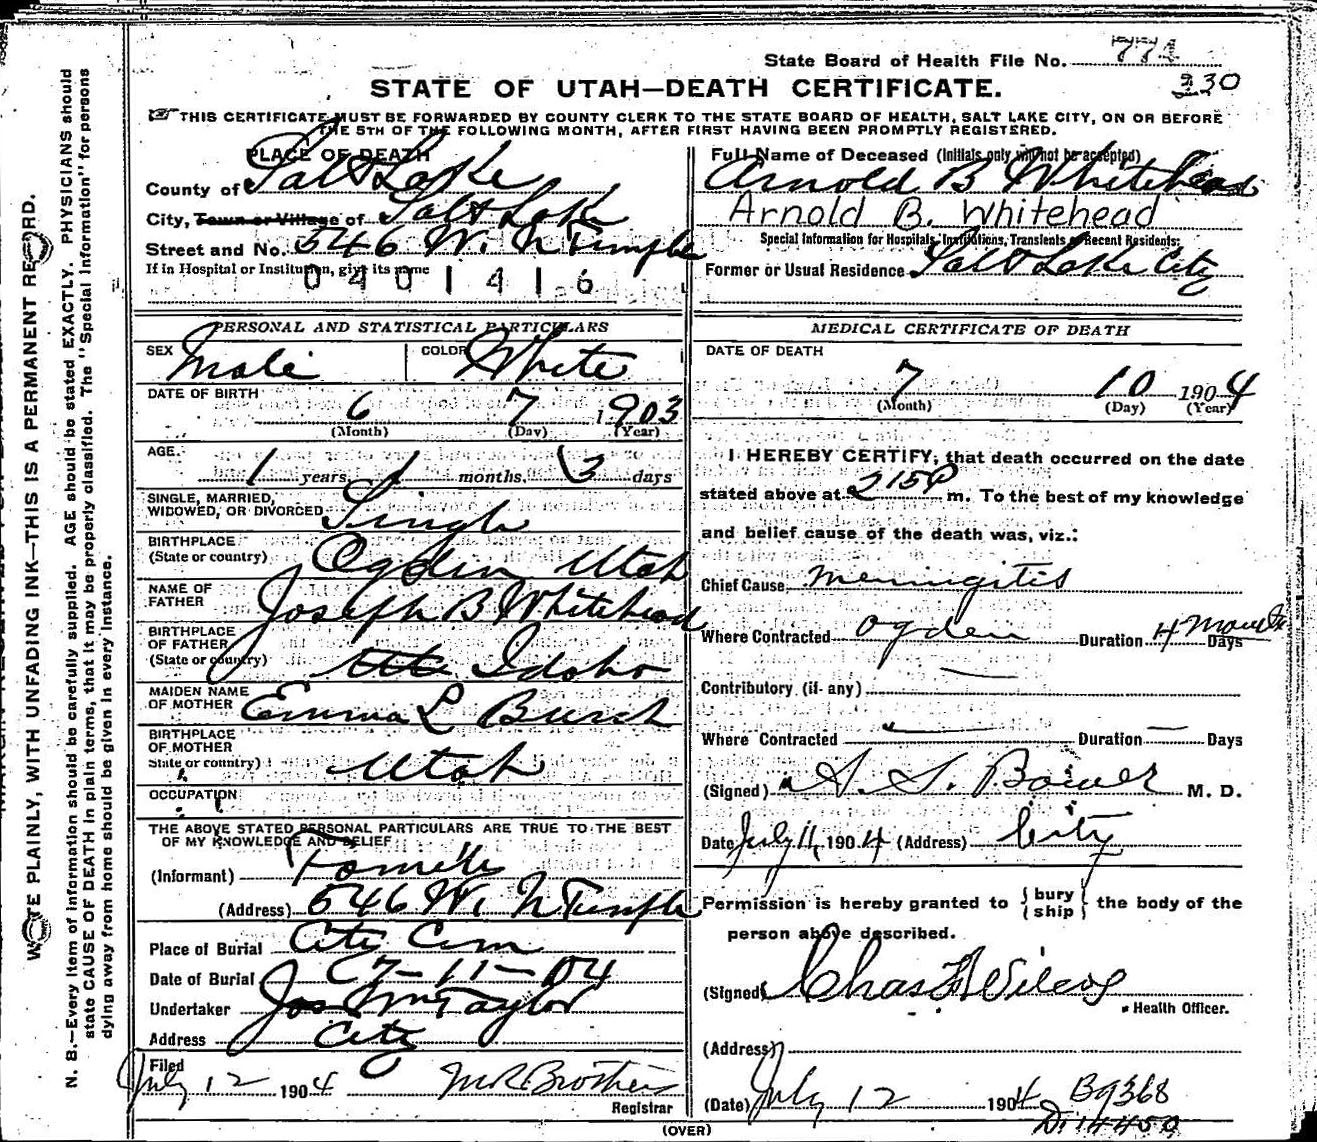 State Board of Health File No. 771
330
STATE OF UTAH—DEATH CERTIFICATE.
THIS CERTIFICATE MUST BE FORWARDED BY COUNTY CLERK TO THE STATE BOARD OF HEALTH, SALT LAKE CITY, ON OR BEFORE
THE 5TH OF THE FOLLOWING MONTH, AFTER FIRST HAVING BEEN PROMPTLY REGISTERED.
PLACE OF DEATH
County of Salt Lake
City, Town or Village of Salt Lake
Street and No. 546 W. N Temple
If in Hospital or Institution, give its name
0401416
Full Name of Deceased (Initials only will not be accepted)
Arnold B Whitehead
Arnold B. Whitehead
Special Information for Hospitals, Institutions, Transients or Recent Residents:
Former or Usual Residence Salt Lake City
PERSONAL AND STATISTICAL PARTICULARS
SEX Male COLOR White
DATE OF BIRTH 6 7 1903
(Month) (Day) (Year)
AGE. 1 years, 1 months, 3 days
SINGLE, MARRIED,
WIDOWED, OR DIVORCED Single
BIRTHPLACE
(State or country) Ogden Utah
NAME OF
FATHER Joseph B Whitehead
BIRTHPLACE
OF FATHER
(State or country) Idaho
MAIDEN NAME
OF MOTHER Emma L Burch
BIRTHPLACE
OF MOTHER
State or country) Utah
OCCUPATION
THE ABOVE STATED PERSONAL PARTICULARS ARE TRUE TO THE BEST
OF MY KNOWLEDGE AND BELIEF
(Informant)
(Address) 546 W. N Temple
Place of Burial City Cem
Date of Burial 7-11-04
Undertaker Jos Wm Taylor
Address City
Filed
July 12 1904 Registrar
MEDICAL CERTIFICATE OF DEATH
DATE OF DEATH
7 10 1904
(Month) (Day) (Year)
I HEREBY CERTIFY, that death occurred on the date
stated above at 215P m. To the best of my knowledge
and belief cause of the death was, viz.:
Chief Cause Meningitis
Where Contracted Ogden Duration 4 Days
Contributory (if any)
Where Contracted — Duration — Days
(Signed) S. S. Bower M. D.
Date July 11, 1904 (Address) City
Permission is hereby granted to {bury
ship} the body of the
person above described.
(Signed) Chas F Wilcox
Health Officer.
(Address)
(Date) July 12 1904
B9368
D14450
(OVER)
WRITE PLAINLY, WITH UNFADING INK—THIS IS A PERMANENT RECORD.
N. B.—Every item of information should be carefully supplied. AGE should be stated EXACTLY. PHYSICIANS should
state CAUSE OF DEATH in plain terms, that it may be properly classified. The "Special Information" for persons
dying away from home should be given in every instance.